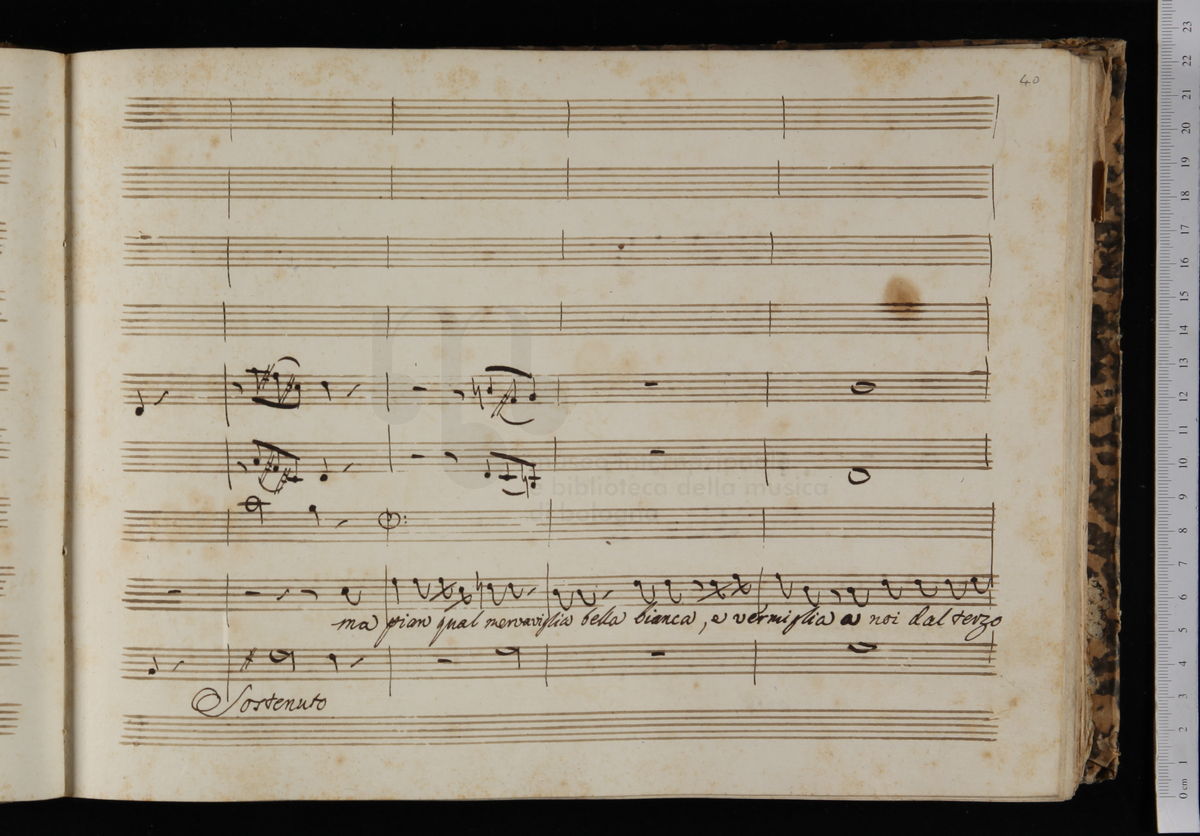 40
ma pian qual meraviglia bella bianca, e vermiglia a noi dal terzo
Sostenuto
e biblioteca della musica
23
22
21
20
19
18
17
16
15
14
13
12
11
10
9
8
7
6
5
4
3
2
1
0 cm